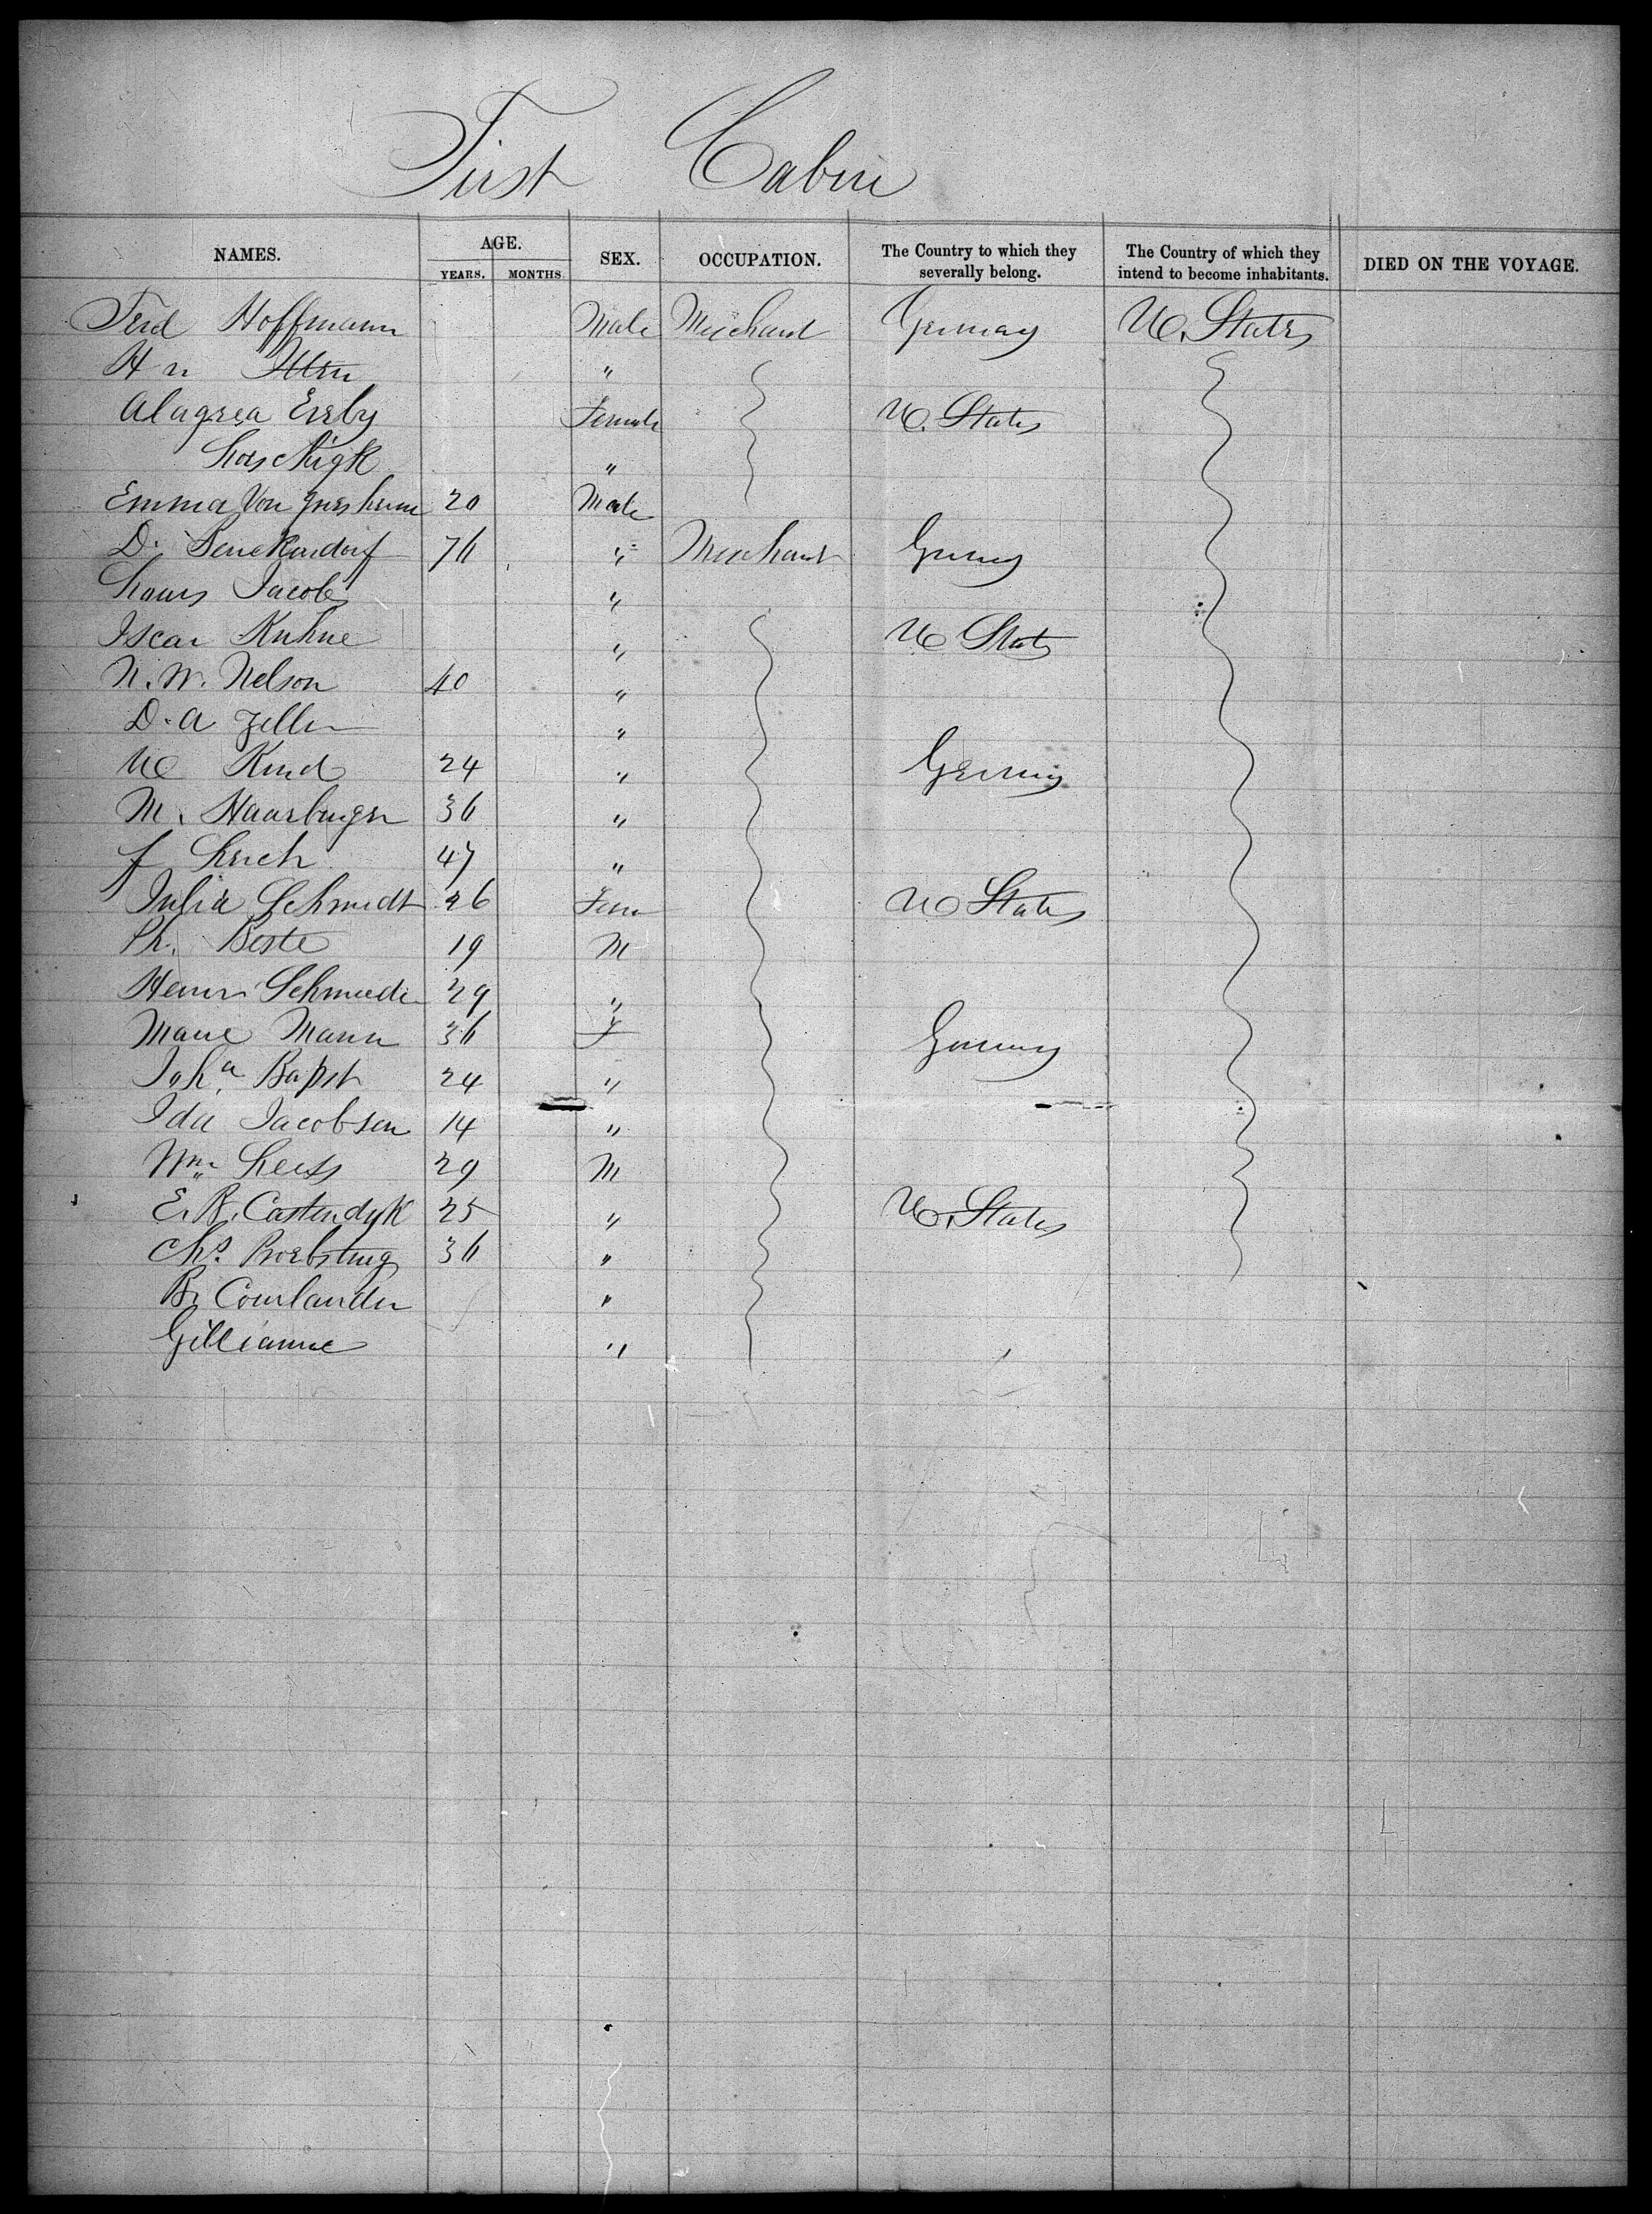 First Cabin
NAMES. AGE. SEX. OCCUPATION. The Country to which they severally belong. The Country of which they intend to become inhabitants. DIED ON THE VOYAGE.
YEARS. MONTHS
Ferd Hoffmann Male Merchant Germany U. States
H n "
Female U. States
"
Emma Von 20 Male
D. 76 " Merchant Germy
Jacob "
Kuhne " U States
N. W. Nelson 40 "
D. A Zeller "
U Kind 24 " Germy
M. Haarburger 36 "
f Lerch 47 "
Julia Schmidt 26 Fem U States
Ph. Boste 19 M
Schmiede 29 "
Marie Mann 36 F Germy
Joh.a Bapst 24 "
Ida Jacobsen 14 "
Wm. 29 M
E. R. Castendyk 25 " U. States
Chs. Proebsting 36 "
B. Courlander "
Gillianne "